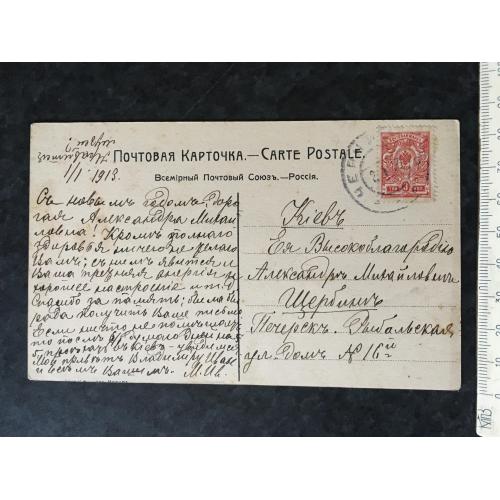 1/I 1913.
ПОЧТОВАЯ КАРТОЧКА.—CARTE POSTALE.
Всемірный Почтовый Союзъ.—Россія.
Съ новымъ годомъ! Доро
гая Александра Михай
ловна! Кромѣ полнаго
здоровья ничего не желаю
Вамъ; съ нимъ явится и
Ваша прежняя энергія и
хорошее настроеніе и т.д.
Спасибо за память; была бы
рада получить Ваше письмо
Если ничто не
то послѣ 6/I думаю
въ Кіевъ — увидимся
Мой привѣтъ Владиміру
и всѣмъ Вашимъ. М. Ив.
Кіевъ
Ея Высокоблагородію
Александрѣ Михайловнѣ
Щербинѣ
Печерскъ. Рыбальская
ул. Домъ № 16й
ЧЕРН